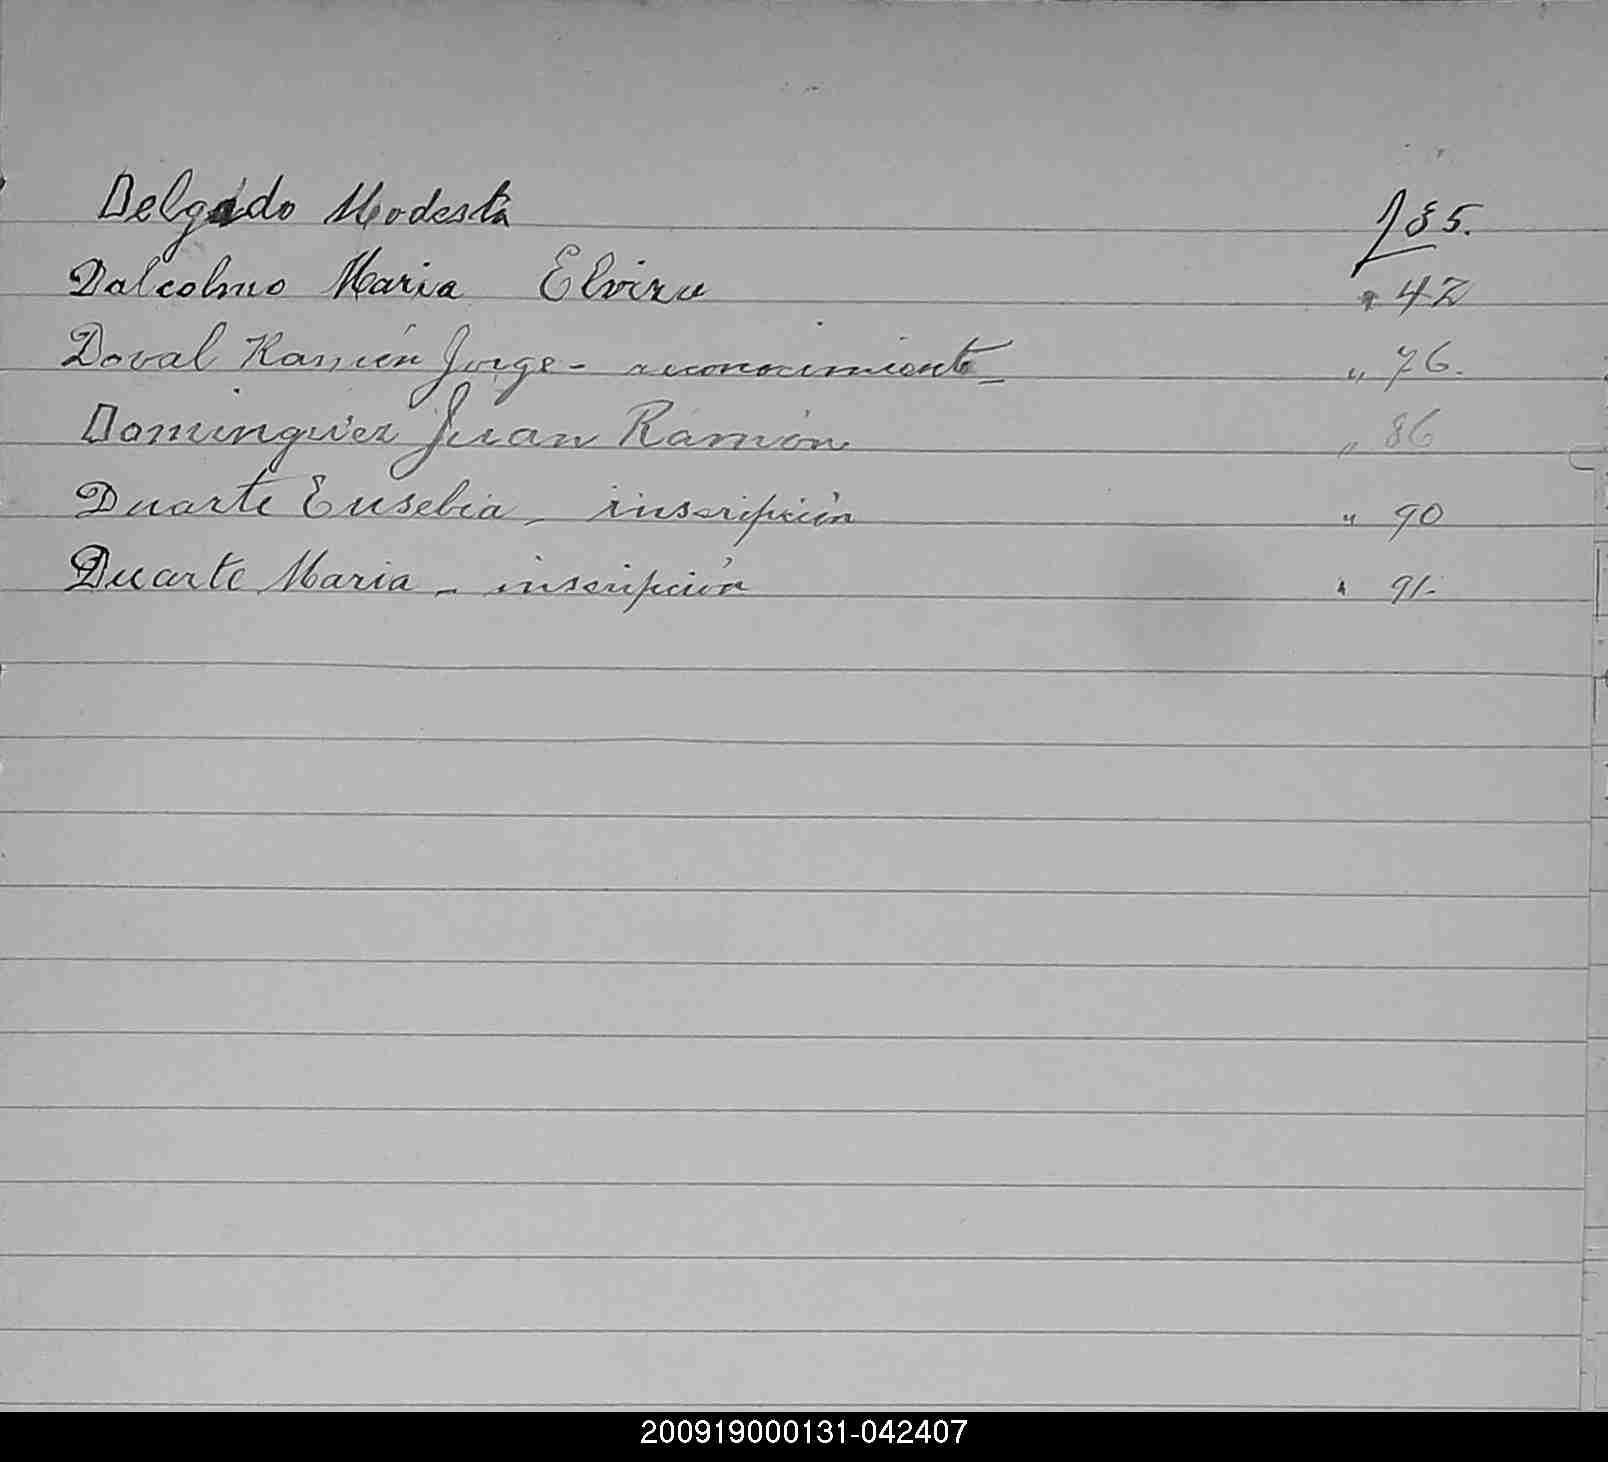 Delgado Modesta f 35.
Dalcolmo Maria Elvira " 42
Doval Ramón Jorge - reconocimiento - " 76.
Dominguez Juan Ramón " 86
Duarte Eusebia - inscripción " 90
Duarte Maria - inscripción " 91-
200919000131-042407